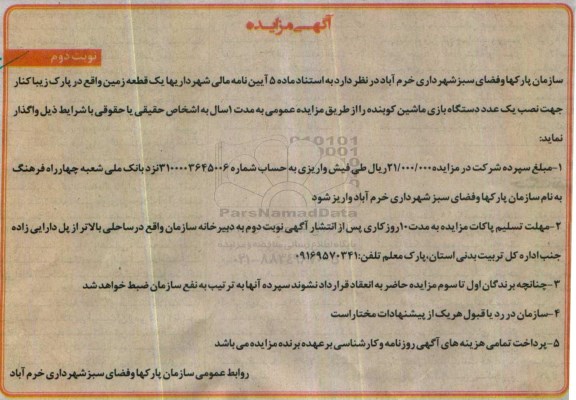 آگهی مزایده
نوبت دوم
سازمان پارکها وفضای سبز شهرداری خرم آباد در نظر دارد به استناد ماده ۵ آیین نامه مالی شهرداریها یک قطعه زمین واقع در پارک زیبا کنار
جهت نصب یک عدد دستگاه بازی ماشین کوبنده را از طریق مزایده عمومی به مدت ۱ سال به اشخاص حقیقی یا حقوقی با شرایط ذیل واگذار
نماید:
۱-مبلغ سپرده شرکت در مزایده ۲۱/۰۰۰/۰۰۰ ریال طی فیش واریزی به حساب شماره ۳۱۰۰۰۰۳۶۴۵۰۰۶ نزد بانک ملی شعبه چهارراه فرهنگ
به نام سازمان پارکها وفضای سبز شهرداری خرم آباد واریز شود
۲-مهلت تسلیم پاکات مزایده به مدت ۱۰ روز کاری پس از انتشار آگهی نوبت دوم به دبیرخانه سازمان واقع در ساحلی بالاتر از پل دارایی زاده
جنب اداره کل تربیت بدنی استان، پارک معلم تلفن: ۰۹۱۶۹۵۷۰۳۴۱
۳-چنانچه برندگان اول تا سوم مزایده حاضر به انعقاد قرارداد نشوند سپرده آنها به ترتیب به نفع سازمان ضبط خواهد شد
۴-سازمان در رد یا قبول هر یک از پیشنهادات مختار است
۵-پرداخت تمامی هزینه های آگهی روزنامه و کارشناسی بر عهده برنده مزایده می باشد
روابط عمومی سازمان پارکها وفضای سبز شهرداری خرم آباد
ParsNamadData